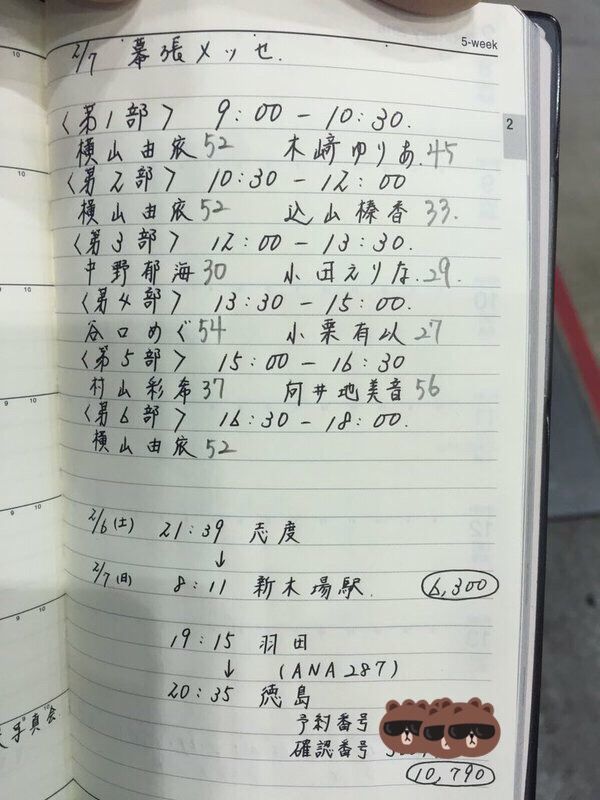 5-week
2/7 幕張メッセ.
2
<第1部> 9:00-10:30.
横山由依 52 木﨑ゆりあ.45
<第2部> 10:30-12:00
横山由依 52 込山榛香 33.
<第3部> 12:00-13:30.
中野郁海 30 小田えりな.29.
<第4部> 13:30-15:00.
谷口めぐ 54 小栗有以 27
<第5部> 15:00-16:30
村山彩希 37 向井地美音 56
<第6部> 16:30-18:00.
横山由依 52
2/6(土) 21:39 志度
↓
2/7(日) 8:11 新木場駅. 6,300
19:15 羽田
↓ (ANA287)
20:35 徳島
予約番号
確認番号
10,790
写真会.
10
10
10
9 10
9 10
9 10